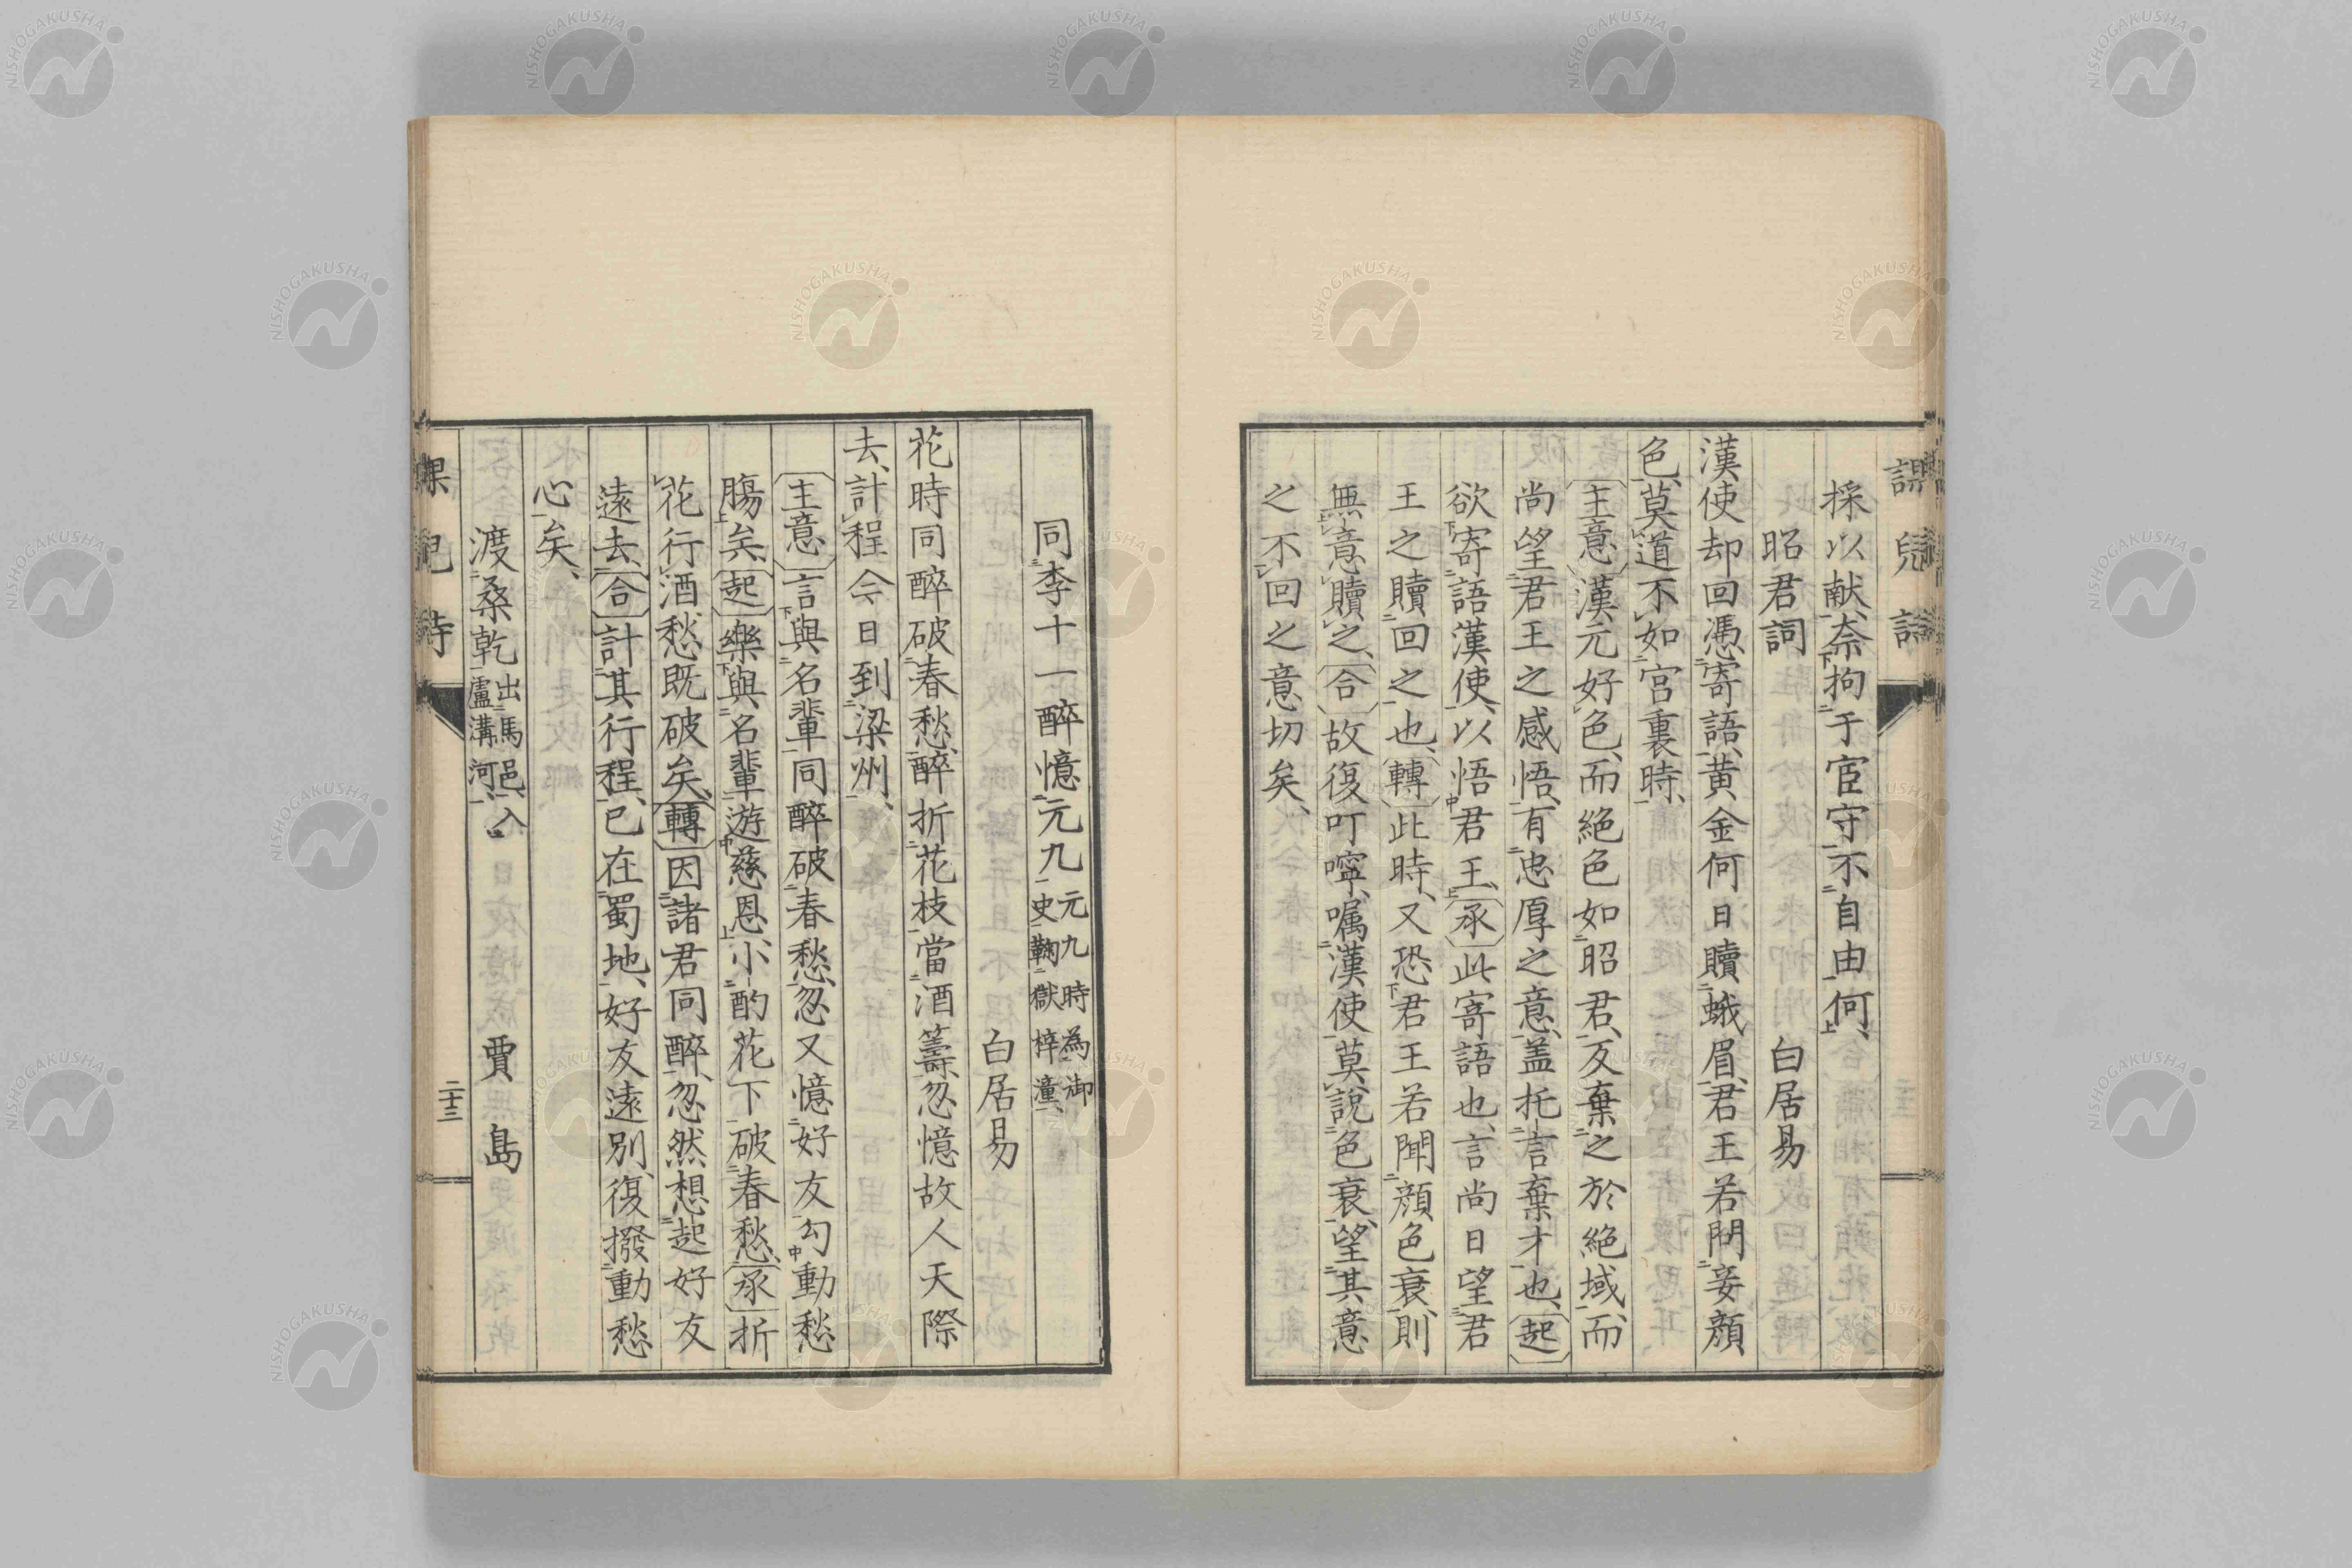 採以献、奈拘于宦守不自由何、
昭君詞　白居易
漢使却回憑寄語、黄金何日贖蛾眉、君王若問妾顔
色、莫道不如宮裏時、
主意 漢元好色、而絕色如昭君、反棄之於絕域、而
尚望君王之感悟、有忠厚之意、盖托言棄才也、起
欲寄語漢使、以悟君王、承 此寄語也、言尚日望君
王之贖回之也、轉 此時、又恐君王若聞顔色衰、則
無意贖之、合 故復叮嚀、嘱漢使莫說色衰、望其意
之不回之意切矣、
同李十一醉憶元九 元九時為御史鞫獄梓潼、
白居易
花時同醉破春愁、醉折花枝當酒籌、忽憶故人天際
去、計程今日到梁州、
主意 言與名輩同醉破春愁、忽又憶好友勾動愁
腸矣、起 樂與名輩遊慈恩、小酌花下破春愁、承 折
花行酒、愁既破矣、轉 因諸君同醉、忽然想起好友
遠去、合 計其行程、已在蜀地、好友遠別、復撥動愁
心矣、
渡桑乾 出馬邑、入盧溝河、　賈島
二十三
NISHOGAKUSHA